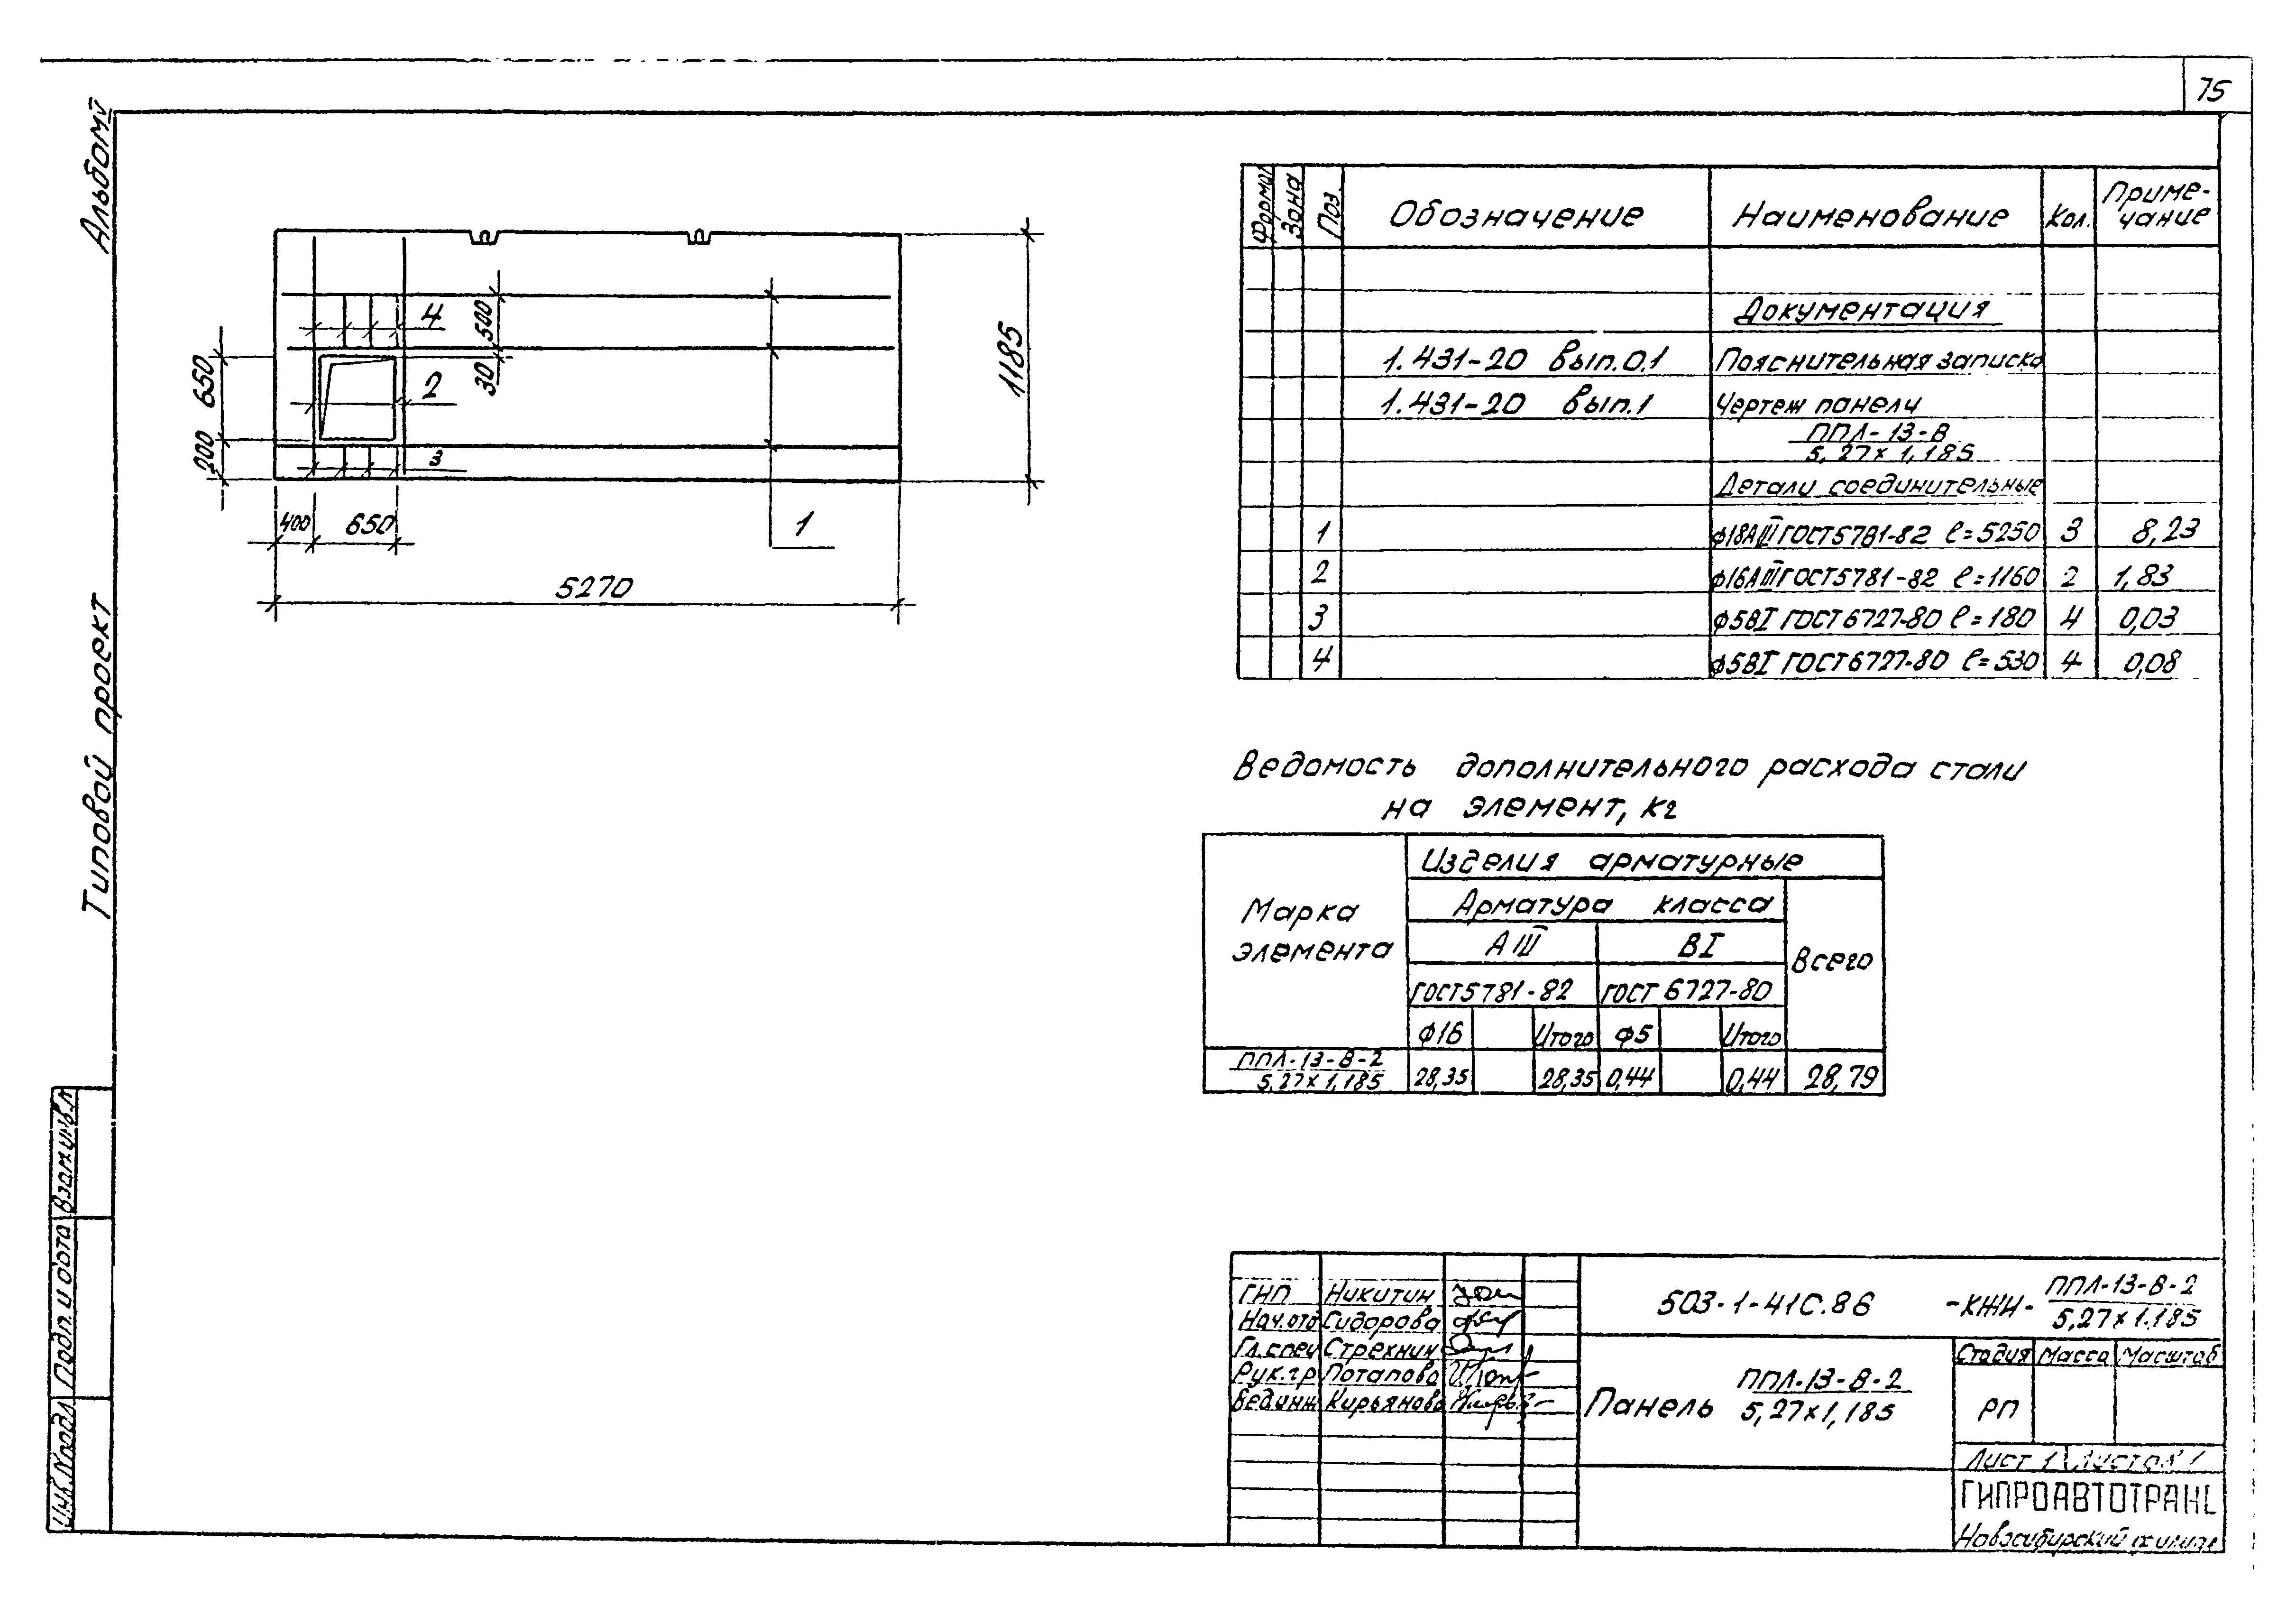 75
Альбом V
Типовой проект
4
500
30
2
650
200
3
1185
400
650
1
5270
Формат
Зона
Поз.
Обозначение
Наименование
Кол.
Приме-
чание
Документация
1.431-20 вып.0.1 Пояснительная записка
1.431-20 вып.1 Чертеж панели
ППЛ-13-В
5,27х1,185
Детали соединительные
1 ф18АIII ГОСТ5781-82 ℓ=5250 3 8,23
2 ф16АIII ГОСТ5781-82 ℓ=1160 2 1,83
3 ф5ВI ГОСТ6727-80 ℓ=180 4 0,03
4 ф5ВI ГОСТ6727-80 ℓ=530 4 0,08
Ведомость дополнительного расхода стали
на элемент, кг
Марка
элемента
Изделия арматурные
Арматура класса
АIII ВI
Всего
ГОСТ5781-82 ГОСТ 6727-80
ф16 Итого ф5 Итого
ППЛ-13-В-2
5,27х1,185
28,35 28,35 0,44 0,44 28,79
Взам.инв.N
Подп. и дата
Инв.N подл
ГНП Никитин
Нач.отд Сидорова
Гл.спец Стрехнин
Рук.гр Потапова
Вед.инж Кирьянова
503-1-41С.86 -КЖИ- ППЛ-13-В-2
5,27х1.185
Панель ППЛ-13-В-2
5,27х1,185
Стадия Масса Масштаб
РП
Лист 1 Листов 1
ГИПРОАВТОТРАНС
Новосибирский филиал